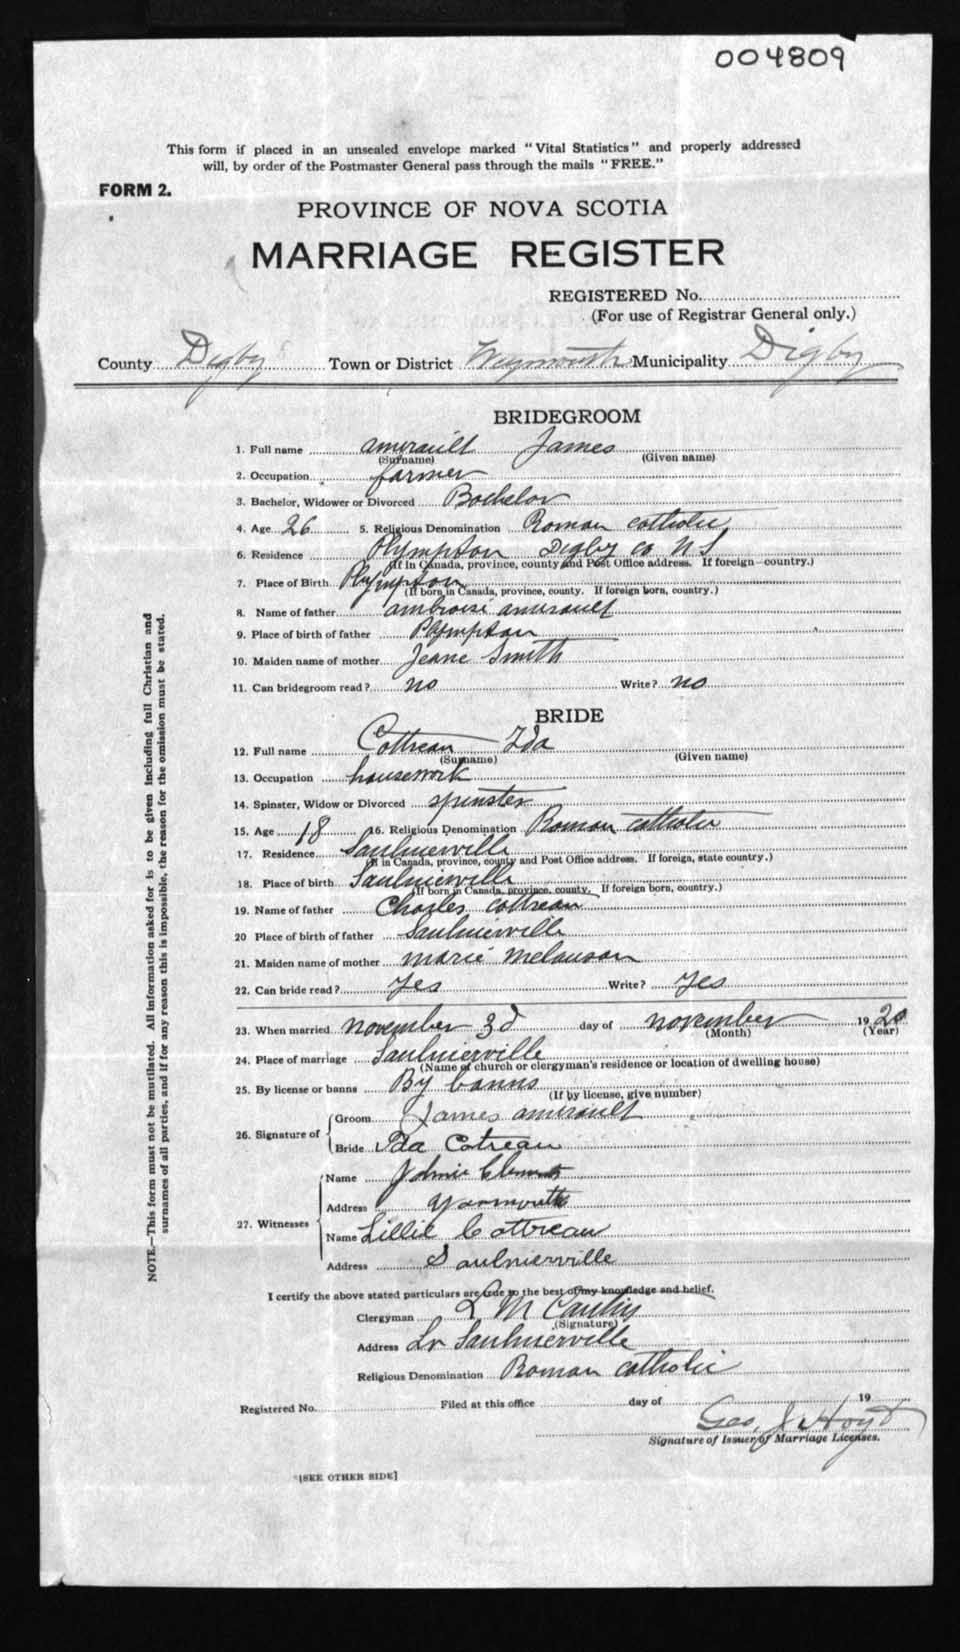 004809
This form if placed in an unsealed envelope marked "Vital Statistics" and properly addressed
will, by order of the Postmaster General pass through the mails "FREE."
FORM 2.
PROVINCE OF NOVA SCOTIA
MARRIAGE REGISTER
REGISTERED No.
(For use of Registrar General only.)
County Digby Town or District Weymouth Municipality Digby
BRIDEGROOM
1. Full name amirault James
(Surname) (Given name)
2. Occupation farmer
3. Bachelor, Widower or Divorced Bachelor
4. Age 26 5. Religious Denomination Roman catholic
6. Residence Plympton Digby co N S
(If in Canada, province, county and Post Office address. If foreign—country.)
7. Place of Birth Plympton
(If born in Canada, province, county. If foreign born, country.)
8. Name of father ambroise amirault
9. Place of birth of father Plympton
10. Maiden name of mother Jeane Smith
11. Can bridegroom read? no Write? no
BRIDE
12. Full name Cottreau Ida
(Surname) (Given name)
13. Occupation housework
14. Spinster, Widow or Divorced spinster
15. Age 18 16. Religious Denomination Roman catholic
17. Residence Saulnierville
(If in Canada, province, county and Post Office address. If foreign, state country.)
18. Place of birth Saulnierville
(If born in Canada, province, county. If foreign born, country.)
19. Name of father Charles cottreau
20 Place of birth of father Saulnierville
21. Maiden name of mother marie melanson
22. Can bride read? Yes Write? Yes
23. When married november 3d day of november 1920
(Month) (Year)
24. Place of marriage Saulnierville
(Name of church or clergyman's residence or location of dwelling house)
25. By license or banns By banns
(If by license, give number)
26. Signature of Groom James amirault
Bride Ida Cotreau
27. Witnesses
Name Johnie
Address Yarmouth
Name Lillie Cottreau
Address Saulnierville
I certify the above stated particulars are true to the best of my knowledge and belief.
Clergyman L M
(Signature)
Address Lr Saulnierville
Religious Denomination Roman catholic
Registered No. Filed at this office day of 19
Geo. J. Hoyt
Signature of Issuer of Marriage Licenses.
[SEE OTHER SIDE]
NOTE.—This form must not be mutilated. All information asked for is to be given including full Christian and
surnames of all parties, and if for any reason this is impossible, the reason for the omission must be stated.